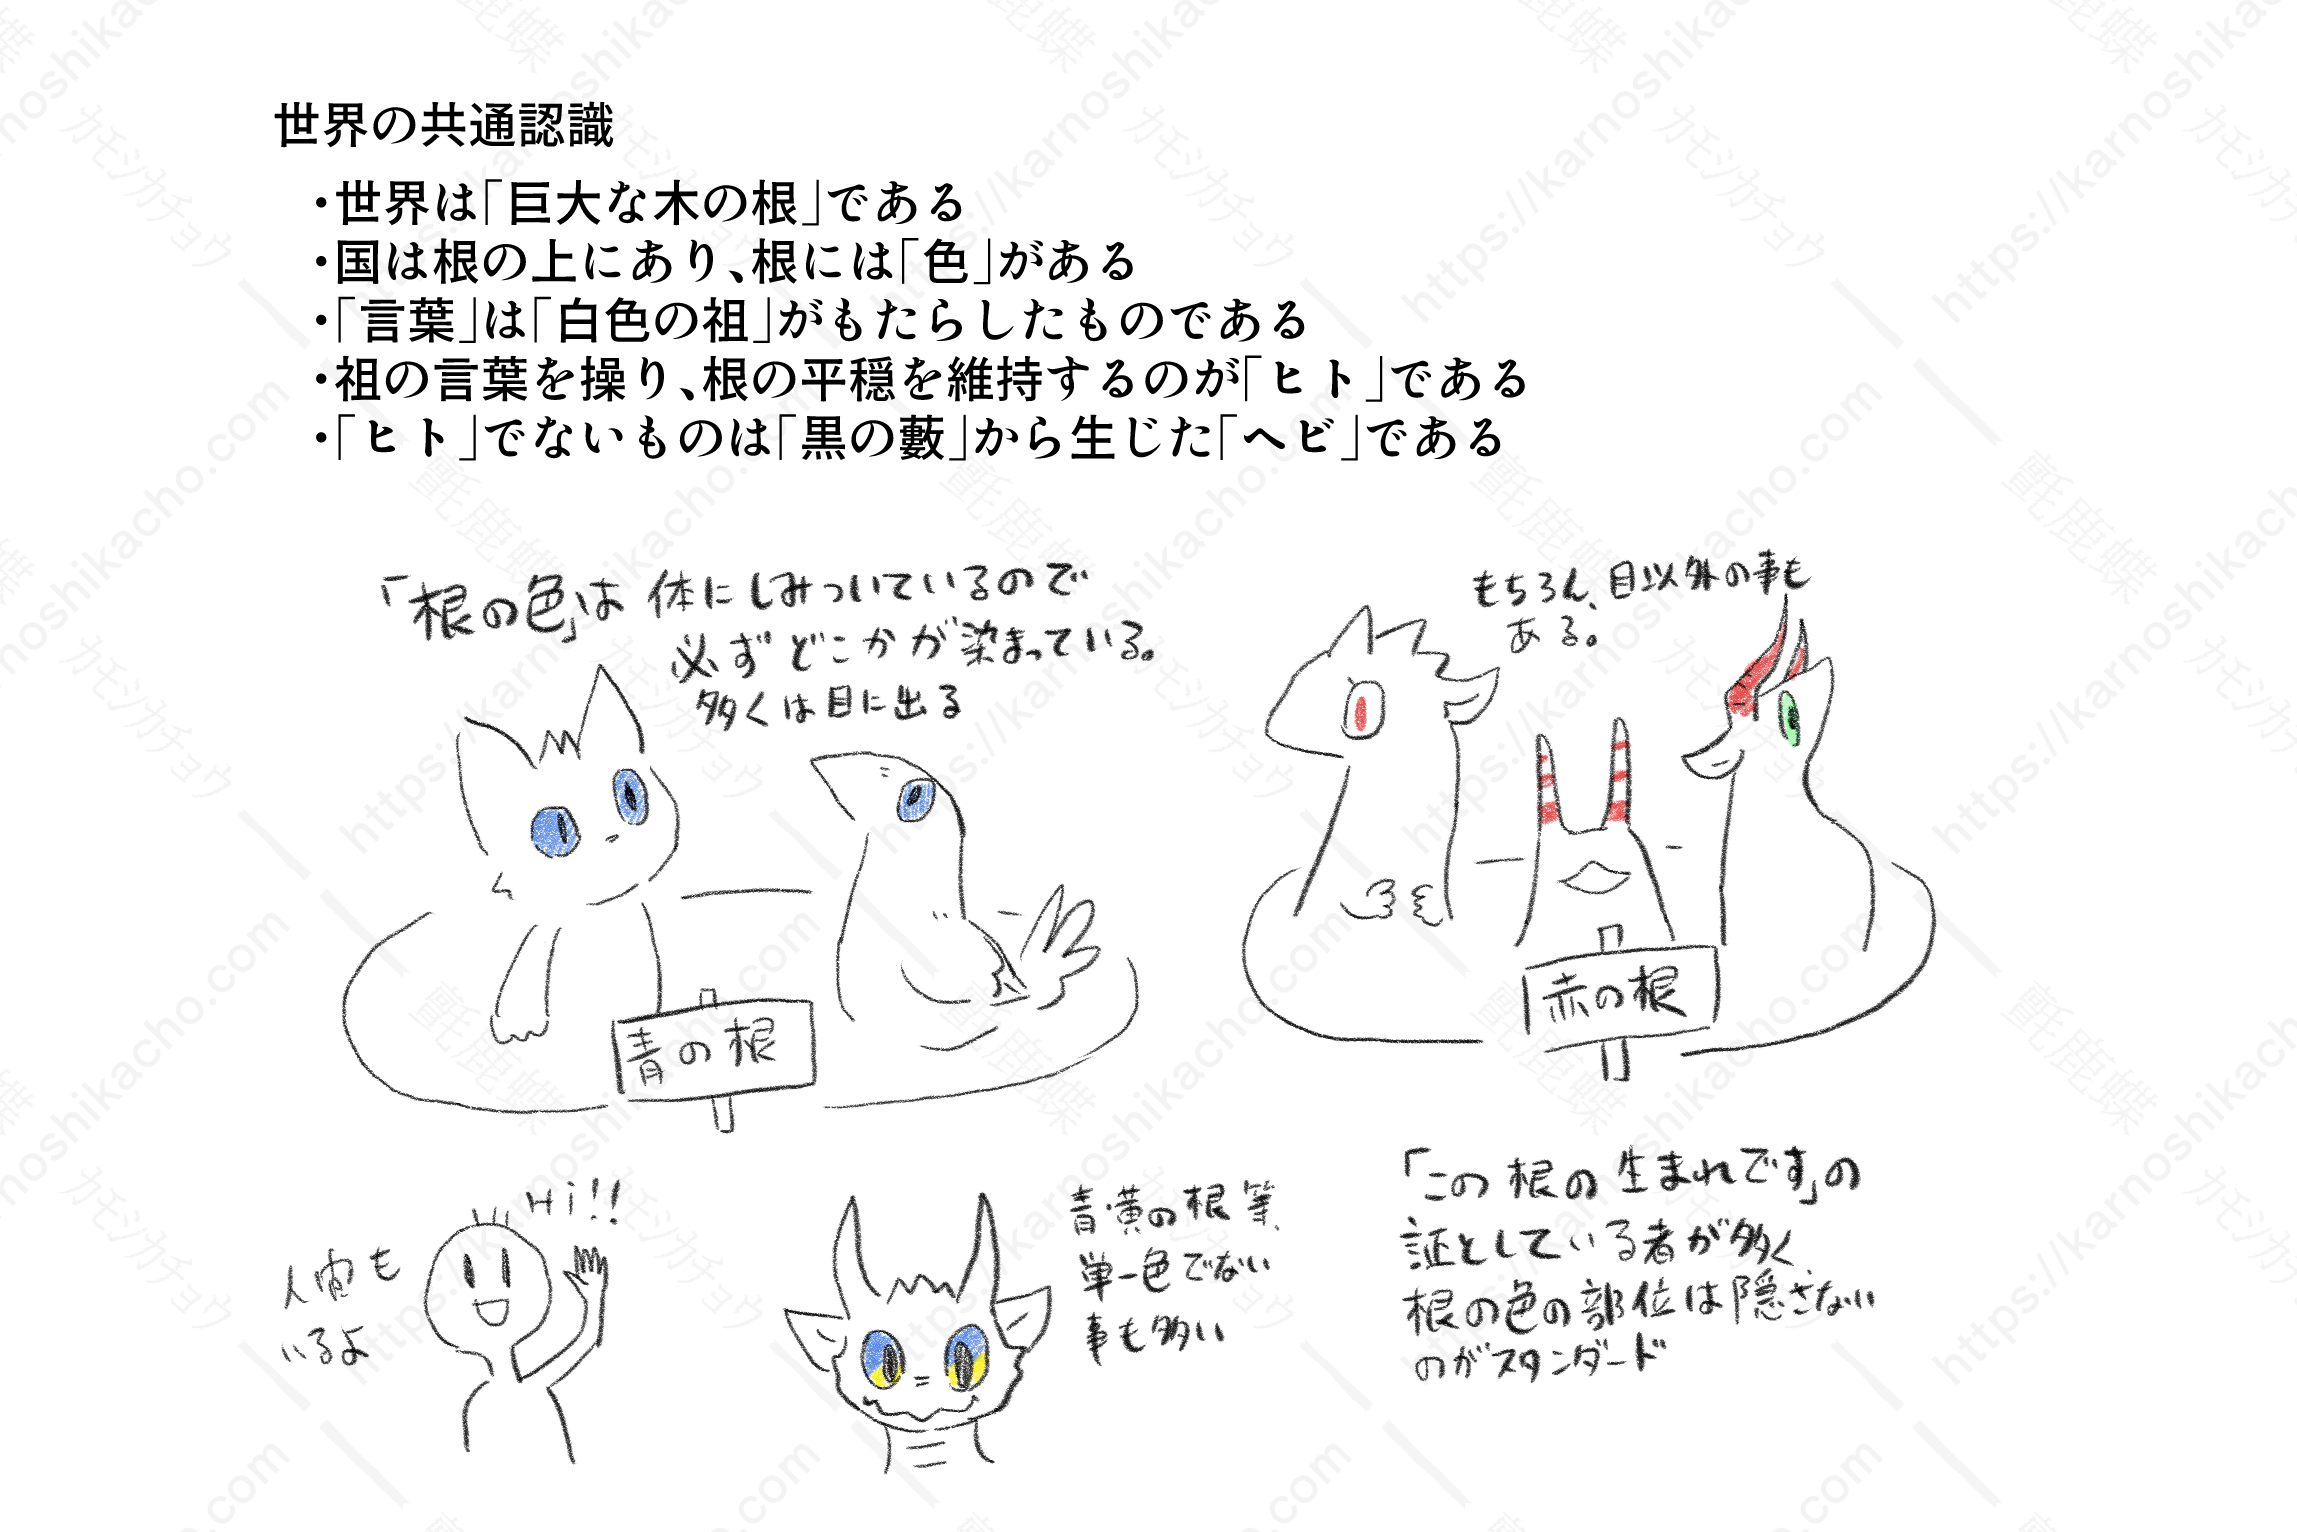 世界の共通認識
・世界は「巨大な木の根」である
・国は根の上にあり、根には「色」がある
・「言葉」は「白色の祖」がもたらしたものである
・祖の言葉を操り、根の平穏を維持するのが「ヒト」である
・「ヒト」でないものは「黒の藪」から生じた「ヘビ」である
「根の色」は体にしみついているので
必ずどこかが染まっている。
多くは目に出る
もちろん、目以外の事も
ある。
青の根
赤の根
Hi!!
人間も
いるよ
青・黄の根等、
単一色でない
事も多い
「この根の生まれです」の
証としている者が多く、
根の色の部位は隠さない
のがスタンダード
カモシカチョウ
氈鹿蝶
https://kamoshikacho.com